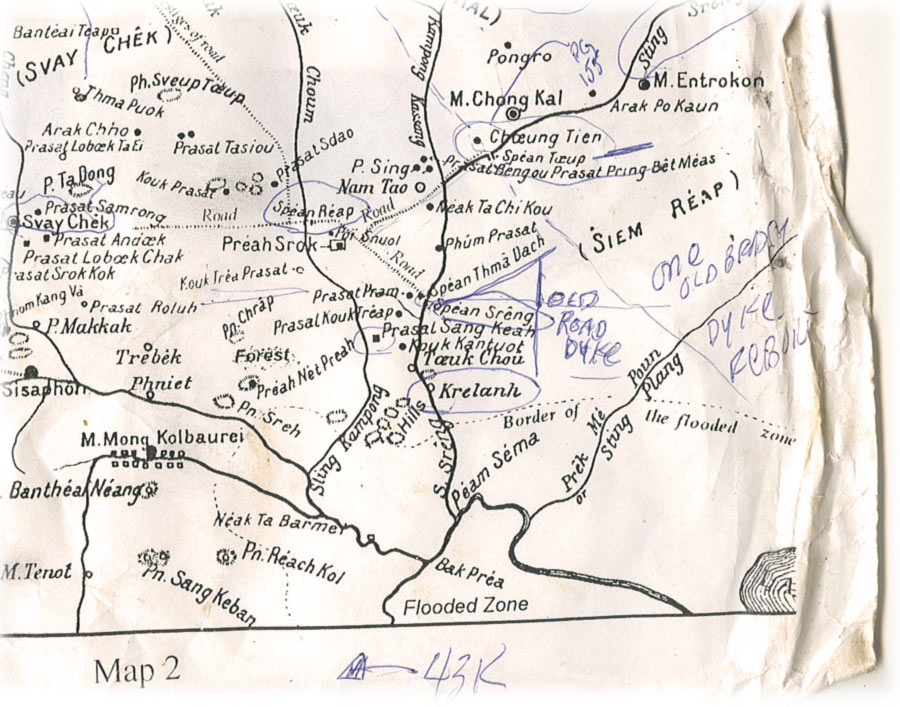 Bantéai Teapu
(SVAY CHÊK)
stages of road
Kampong Kasang
Sting Sreng
Pongro
PG 155
Ph.Sveup Tœup
Thma Puok
M.Entrokon
M.Chong Kal
Arak Po Kaun
Choun
Arak Chho
Prasat Lobœk Ta Ei
Prasat Tasiou
Prasat Sdao
Chœung Tien
Spéan Tœup
Prasat Bengou Prasat Pring Bêt Méas
P. Sing
Nam Tao
P. Ta Dong
Kouk Prasat
Prasat Samrong
Svay Chék
Road
Spéan Réap
Road
Néak Ta Chi Kou
(SIEM RÉAP)
Prasat Andœk
Préah Srok
Poi Snuol
Phúm Prasat
Prasat Lobœk Chak
Prasat Srok Kok
Road
Spéan Thmâ Dach
ONE
OLD BRIDGE
Kouk Tréa Prasat
Phnom Kang Vá
Prasat Roluh
Prasat Pram
Spéan Srêng
OLD
ROAD
DYKE
DYKE
REBUILT
Pn. Chráp
Prasat Kouk Tréap
Prasat Sang Keah
P.Makkak
Kouk Kantuot
Trêbêk
Forest
Tœuk Chou
Sisaphon
Phniet
Préah Nèt Préah
Krelanh
Pn. Sreh
Hills
Border of the flooded zone
Prêk Mé Poun
or Sting Plang
M.Mong Kolbaurei
Sting Kampong
S. Srêng
Péam Séma
Banthéai Néang
Néak Ta Barmei
M.Tenot
Pn. Sang Keban
Pn. Réach Kol
Bak Préa
Flooded Zone
Map 2
43K